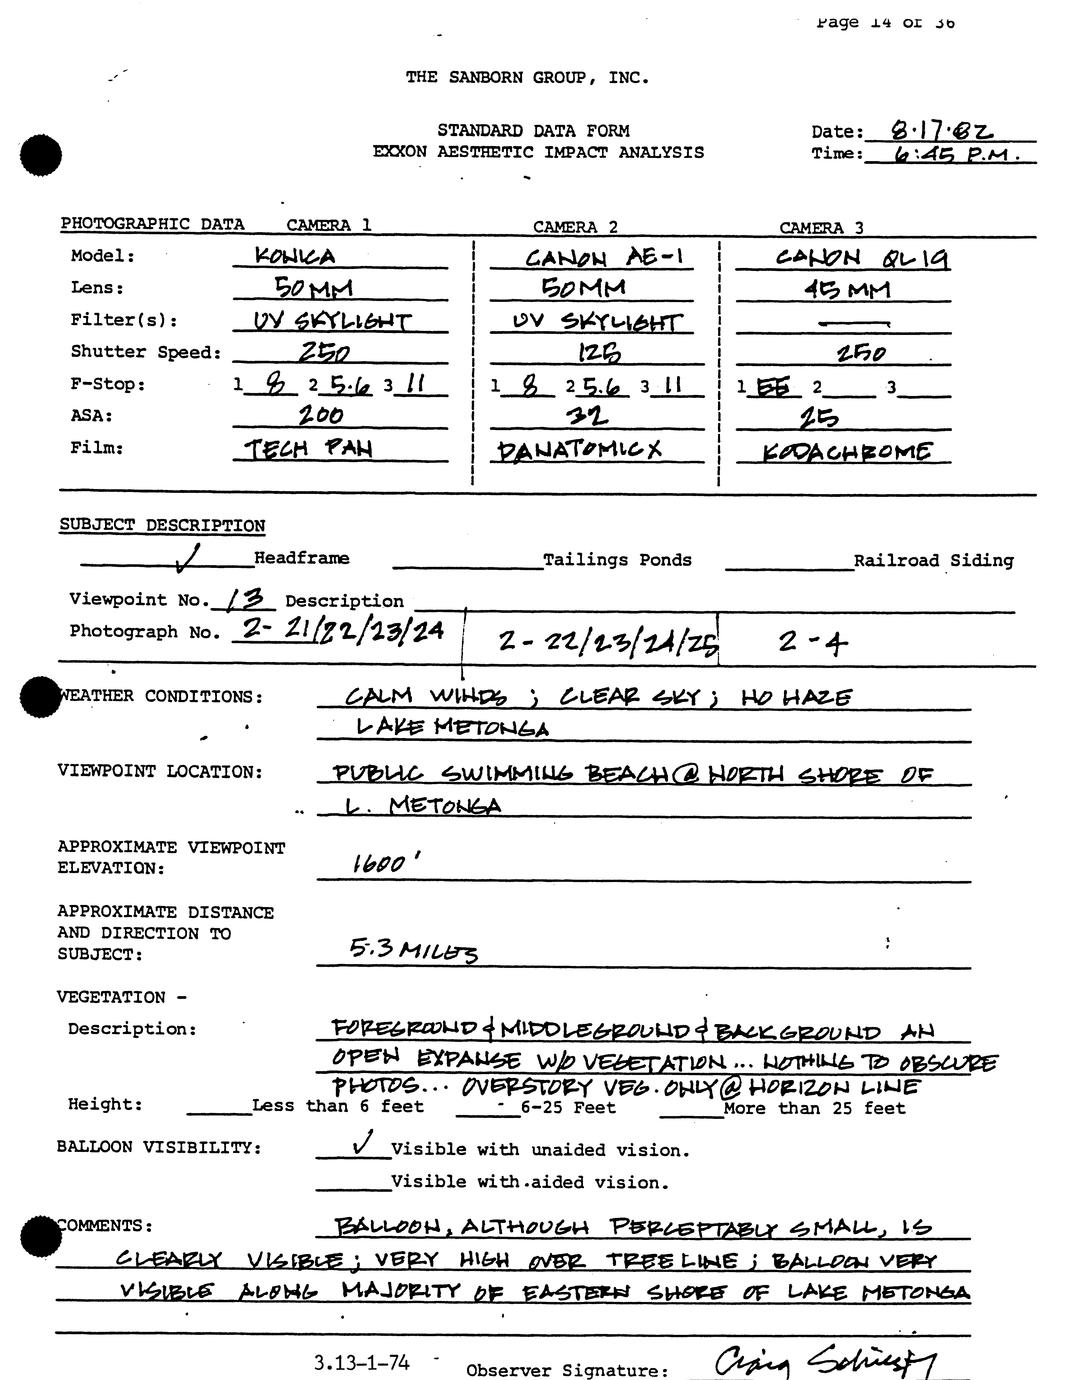 Page 14 of 36
THE SANBORN GROUP, INC.
STANDARD DATA FORM
EXXON AESTHETIC IMPACT ANALYSIS
Date: 8·17·82
Time: 6:45 P.M.
PHOTOGRAPHIC DATA CAMERA 1 CAMERA 2 CAMERA 3
Model: KONICA CANON AE-1 CANON QL19
Lens: 50MM 50MM 45MM
Filter(s): UV SKYLIGHT UV SKYLIGHT —
Shutter Speed: 250 125 250
F-Stop: 1 8 2 5.6 3 11 1 8 2 5.6 3 11 1 EE 2 3
ASA: 200 32 25
Film: TECH PAN PANATOMIC X KODACHROME
SUBJECT DESCRIPTION
✓ Headframe Tailings Ponds Railroad Siding
Viewpoint No. 13 Description
Photograph No. 2- 21/22/23/24 2- 22/23/24/25 2-4
WEATHER CONDITIONS: CALM WINDS ; CLEAR SKY ; NO HAZE
LAKE METONGA
VIEWPOINT LOCATION: PUBLIC SWIMMING BEACH @ NORTH SHORE OF
L. METONGA
APPROXIMATE VIEWPOINT
ELEVATION: 1600'
APPROXIMATE DISTANCE
AND DIRECTION TO
SUBJECT: 5.3 MILES
VEGETATION -
Description: FOREGROUND & MIDDLEGROUND & BACKGROUND AN
OPEN EXPANSE W/O VEGETATION... NOTHING TO OBSCURE
PHOTOS... OVERSTORY VEG. ONLY @ HORIZON LINE
Height: Less than 6 feet 6-25 Feet More than 25 feet
BALLOON VISIBILITY: ✓ Visible with unaided vision.
Visible with aided vision.
COMMENTS: BALLOON, ALTHOUGH PERCEPTABLY SMALL, IS
CLEARLY VISIBLE ; VERY HIGH OVER TREELINE ; BALLOON VERY
VISIBLE ALONG MAJORITY OF EASTERN SHORE OF LAKE METONGA
3.13-1-74 Observer Signature: Craig